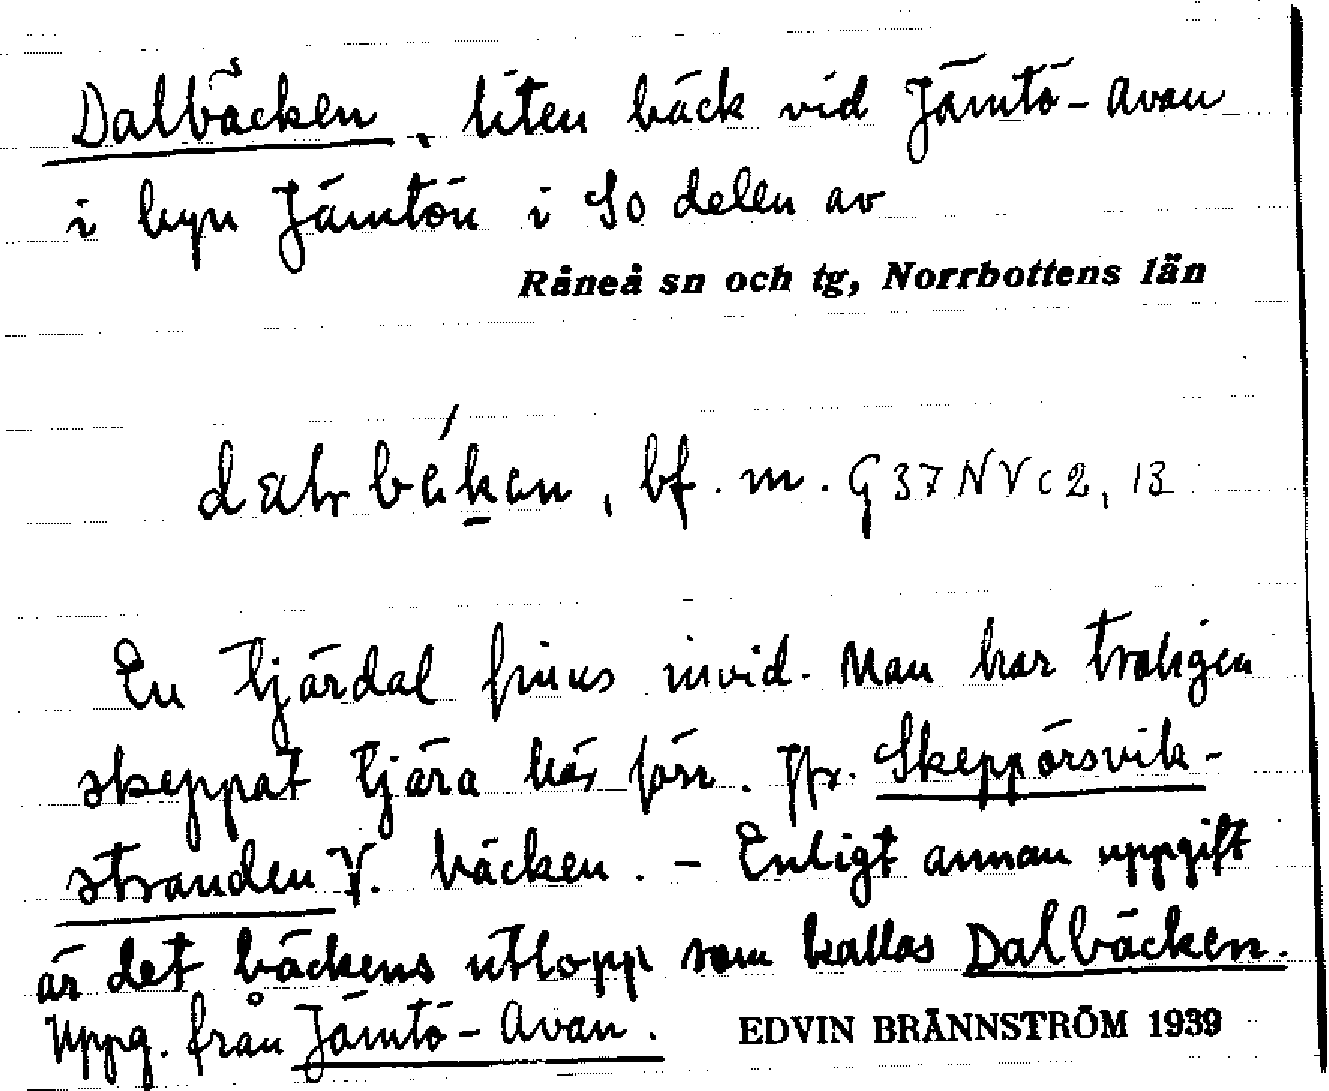 Dalbäcken, liten bäck vid Jämtö-Avan
i byn Jämtön i So delen av
Råneå sn och tg, Norrbottens län
bf. m. G 37 NV c 2, 13
En tjärdal finns invid. Man har troligen
skeppat tjära här förr. Jfr. Skeppörsvik-
stranden V. bäcken. - Enligt annan uppgift
är det bäckens utlopp som kallas Dalbäcken.
Uppg. från Jämtö-Avan.
EDVIN BRÄNNSTRÖM 1939